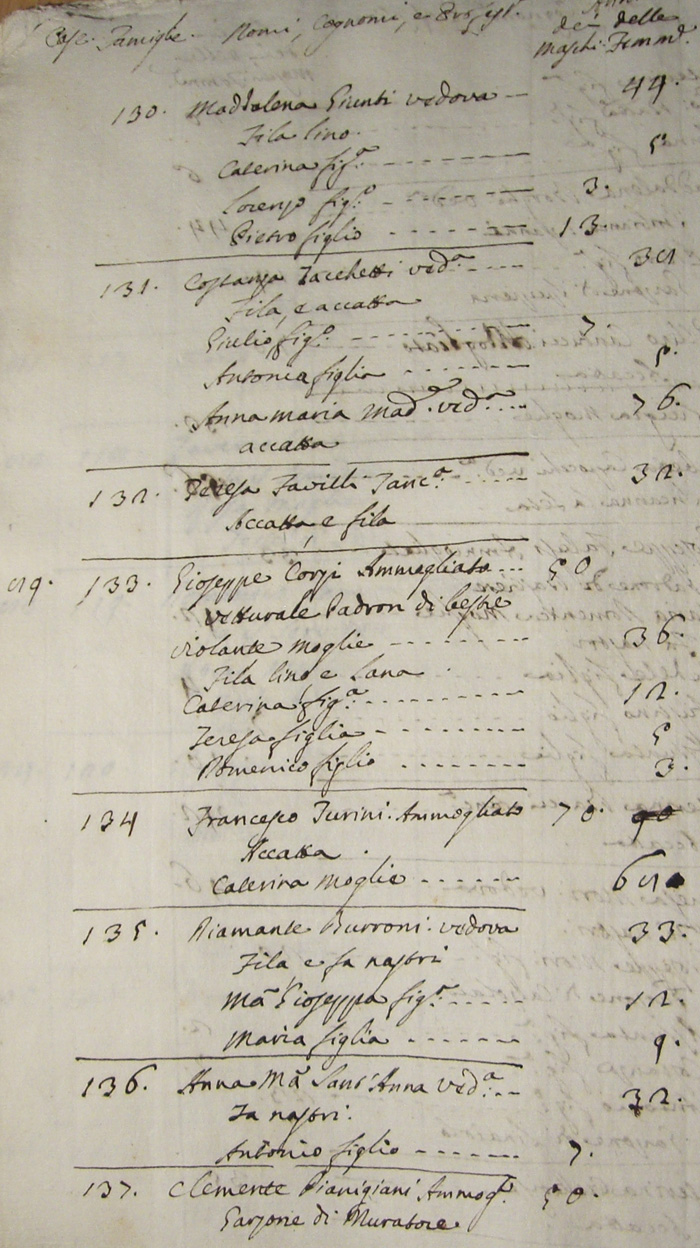 Case. Famiglie. Nomi, Cognomi, e Profess.ni Anni
de' delle
Maschi. Femm.e
130. Maddalena Giunti vedova 44.
Fila lino.
Caterina fig.a 5
Lorenzo fig.o 3.
Pietro figlio 13
131. Costanza Zacchetti ved.a 39
Fila, e accatta
Giulio fig.o 7.
Antonia figlia 5.
Anna maria Mad.e ved.a 76.
accatta
132. Teresa Favilli Fanc.a 32.
Accatta, e fila
49. 133. Gioseppe Corsi Ammogliato 50.
vetturale Padron di bestie
violante moglie 36.
Fila lino e Lana
Caterina fig.a 12.
Teresa figlia 5
Domenico figlio 3.
134 Francesco Turini. Ammogliato 70.
Accatta.
Caterina Moglie 69
135. Diamante Burroni. vedova 33.
Fila e fa nastri
Ma Gioseppa fig.a 12.
Maria figlia 9.
136. Anna Ma Sant'Anna ved.a 32.
Fa nastri.
Antonio figlio 7.
137. Clemente Pianigiani Ammog.o 50.
Garzone di Muratore